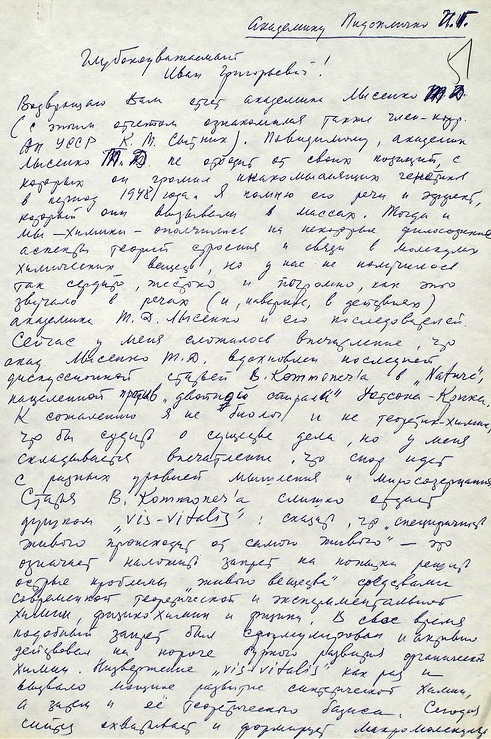 Академику Пидопличко И.Г.
51
Глубокоуважаемый
Иван Григорьевич!
Возвращаю Вам отчет академика Лысенко Т.Д.
(с этим отчетом ознакомился также член-корр.
АН УССР К. М. Сытник). Повидимому, академик
Лысенко Т.Д не отходит от своих позиций, с
которых он громил инакомыслящих генетиков
в период 1948 года. Я помню его речи и эффект,
который они вызывали в массах. Тогда и
мы – химики – ополчились на некоторые философские
аспекты теории строения и связи в молекулах
химических веществ, но у нас не получилось
так сердито, жестко и погромно, как это
звучало в речах (и, наверное, в действиях)
академика Т.Д. Лысенко и его последователей.
Сейчас у меня сложилось впечатление, что
акад Лысенко Т.Д. вдохновлен последней
дискуссионной статьей В. Коммонер'а в „Nature",
нацеленной против „двойной спирали" Уотсона-Крика.
К сожалению я не биолог и не теоретик-химик,
что бы судить о существе дела, но у меня
складывается впечатление, что спор идет
с разных уровней мышления и миросозерцания
Статья В. Коммонер'а слишком отдает
душком „vis-vitalis": сказать, что „специфичность
живого происходит от самого живого" – это
означает наложить запрет на попытки решить
острые проблемы „живого вещества" средствами
современной теоретической и экспериментальной
химии, физико химии и физики. В свое время
подобный запрет был сформулирован и активно
действовал на пороге бурного развития органической
химии. Низвержение „vis-vitalis" как раз и
вызвало мощное развитие синтетической химии,
а затем и её теоретического базиса. Сегодня
синтез охватывает и формирует макромолекулы